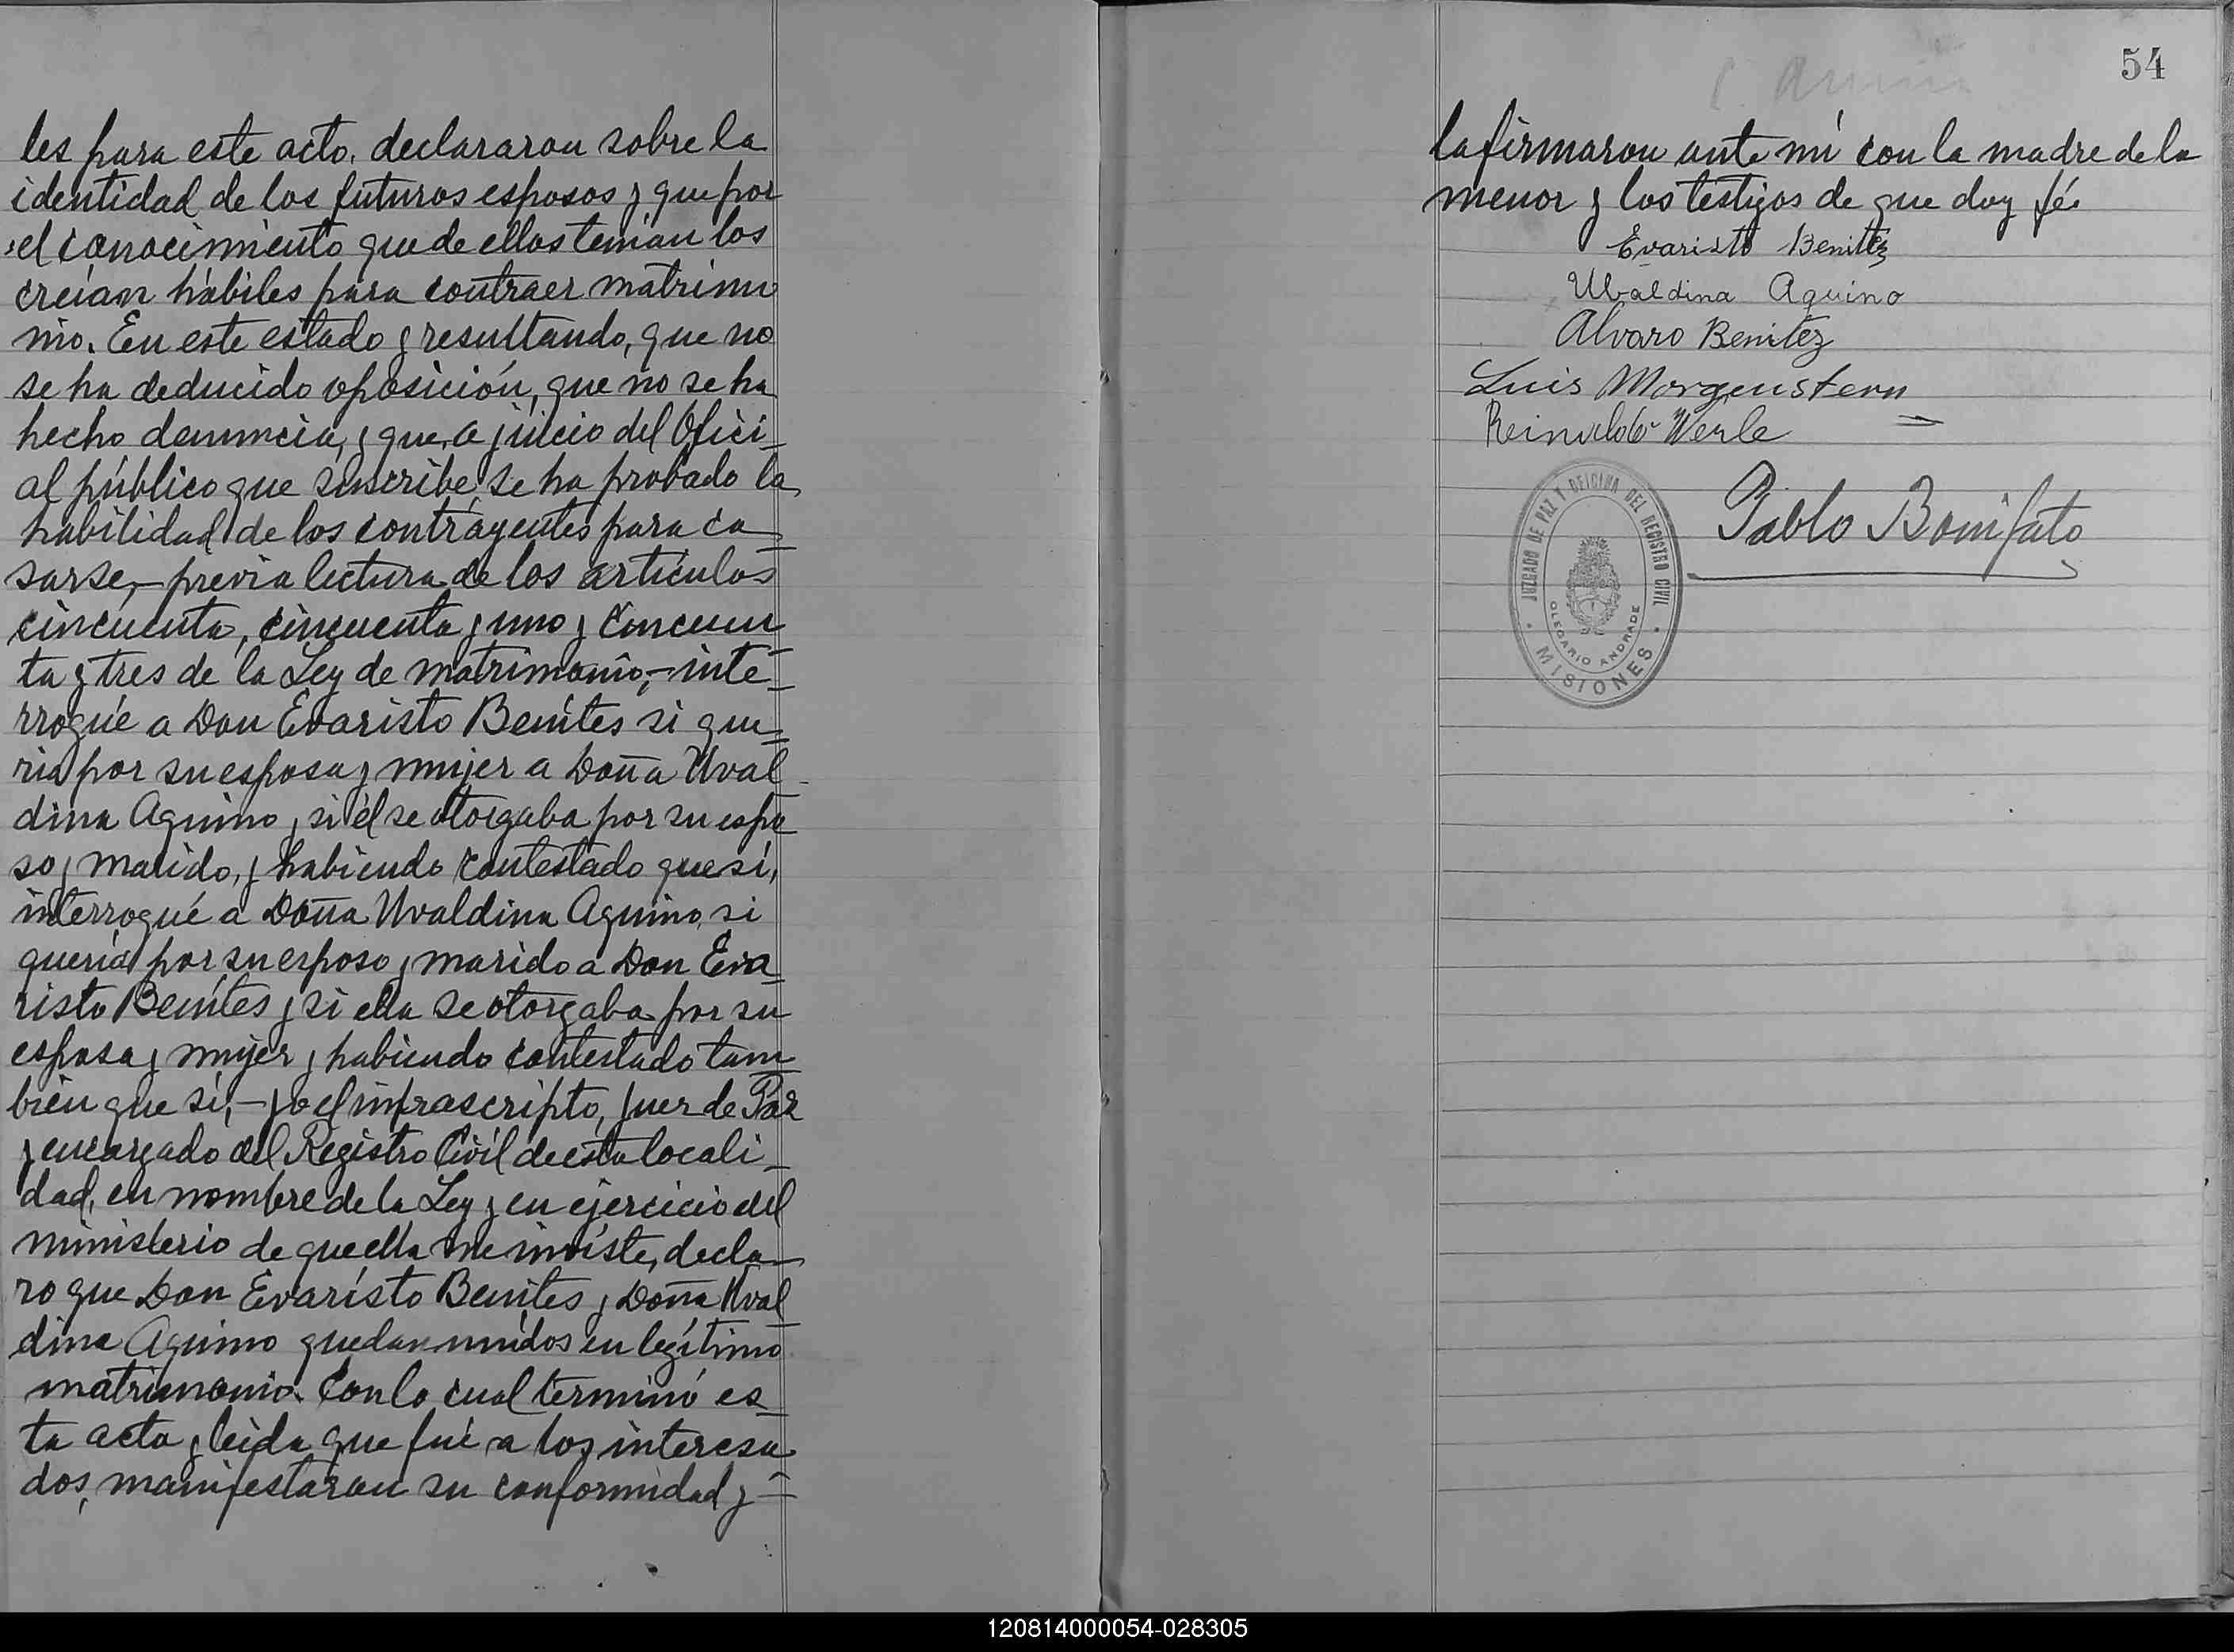 les para este acto, declararon sobre la
identidad de los futuros esposos y que por
el conocimiento que de ellos tenían los
creían hábiles para contraer matrimo
nio. En este estado y resultando, que no
se ha deducido oposición, que no se ha
hecho denuncia, y que, a juicio del Ofici_
al público que suscribe, se ha probado la
habilidad de los contrayentes para ca_
sarse, - previa lectura de los artículos
cincuenta, cincuenta y uno y cincuen_
ta y tres de la Ley de matrimonio, - inte_
rrogué a Don Evaristo Benítes si que_
ría por su esposa y mujer a Doña Uval_
dina Aquino y si él se otorgaba por su espo
so y marido, y habiendo contestado que sí,
interrogué a Doña Uvaldina Aquino, si
quería por su esposo y marido a Don Eva_
risto Benítes y si ella se otorgaba por su
esposa y mujer y habiendo contestado tam_
bién que sí, - yo el infrascripto, Juez de Paz
y encargado del Registro Civil de esta locali_
dad, en nombre de la Ley y en ejercicio del
ministerio de que ella me inviste, decla_
ro que Don Evaristo Benítes y Doña Uval_
dina Aquino quedan unidos en legítimo
matrimonio. Con lo cual terminó es_
ta acta y leída que fué a los interesa_
dos, manifestaron su conformidad y =
54
la firmaron ante mí con la madre de la
menor y los testigos de que doy fé.
Evaristo Benitez
Ubaldina Aquino
Alvaro Benitez
Luis Morgenstern
Reinaldo Werle
Pablo Bonifato
JUZGADO DE PAZ Y OFICINA DEL REGISTRO CIVIL
OLEGARIO ANDRADE
• MISIONES •
120814000054-028305